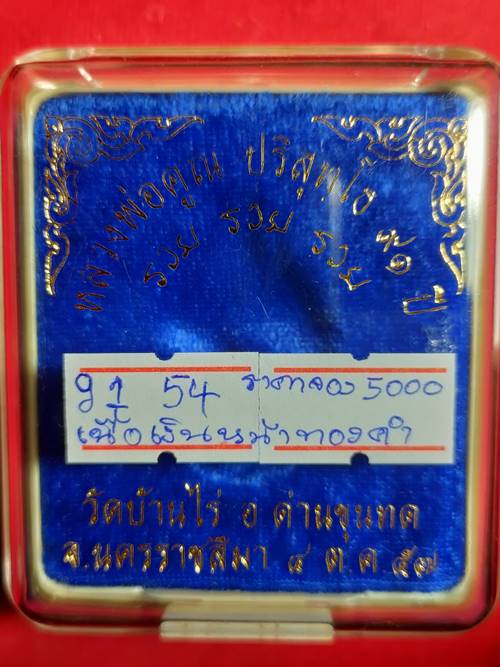 หลวงพ่อคูณ ปริสุทโธ ๙๑ ปี
รวย รวย รวย
91 54 ราคาจอง 5000
เนื้อเงินหน้าทองคำ
วัดบ้านไร่ อ ด่านขุนทด
จ.นครราชสีมา ๔ ต.ค.๕๗